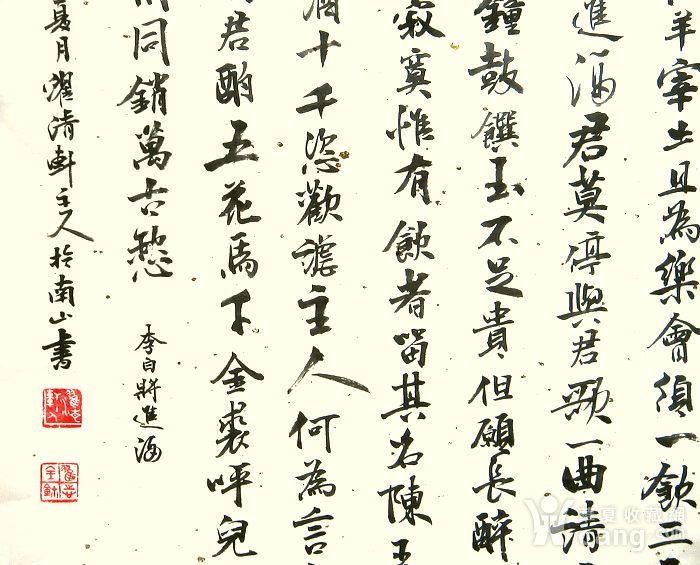 羊宰牛且為樂會須一飲三
進酒君莫停與君歌一曲請
鐘鼓饌玉不足貴但願長醉
寂寞惟有飲者留其名陳王
酒十千恣歡謔主人何為言
君酌五花馬千金裘呼兒
同銷萬古愁
李白將進酒
夏月濯清軒主人於南山書
华夏收藏网